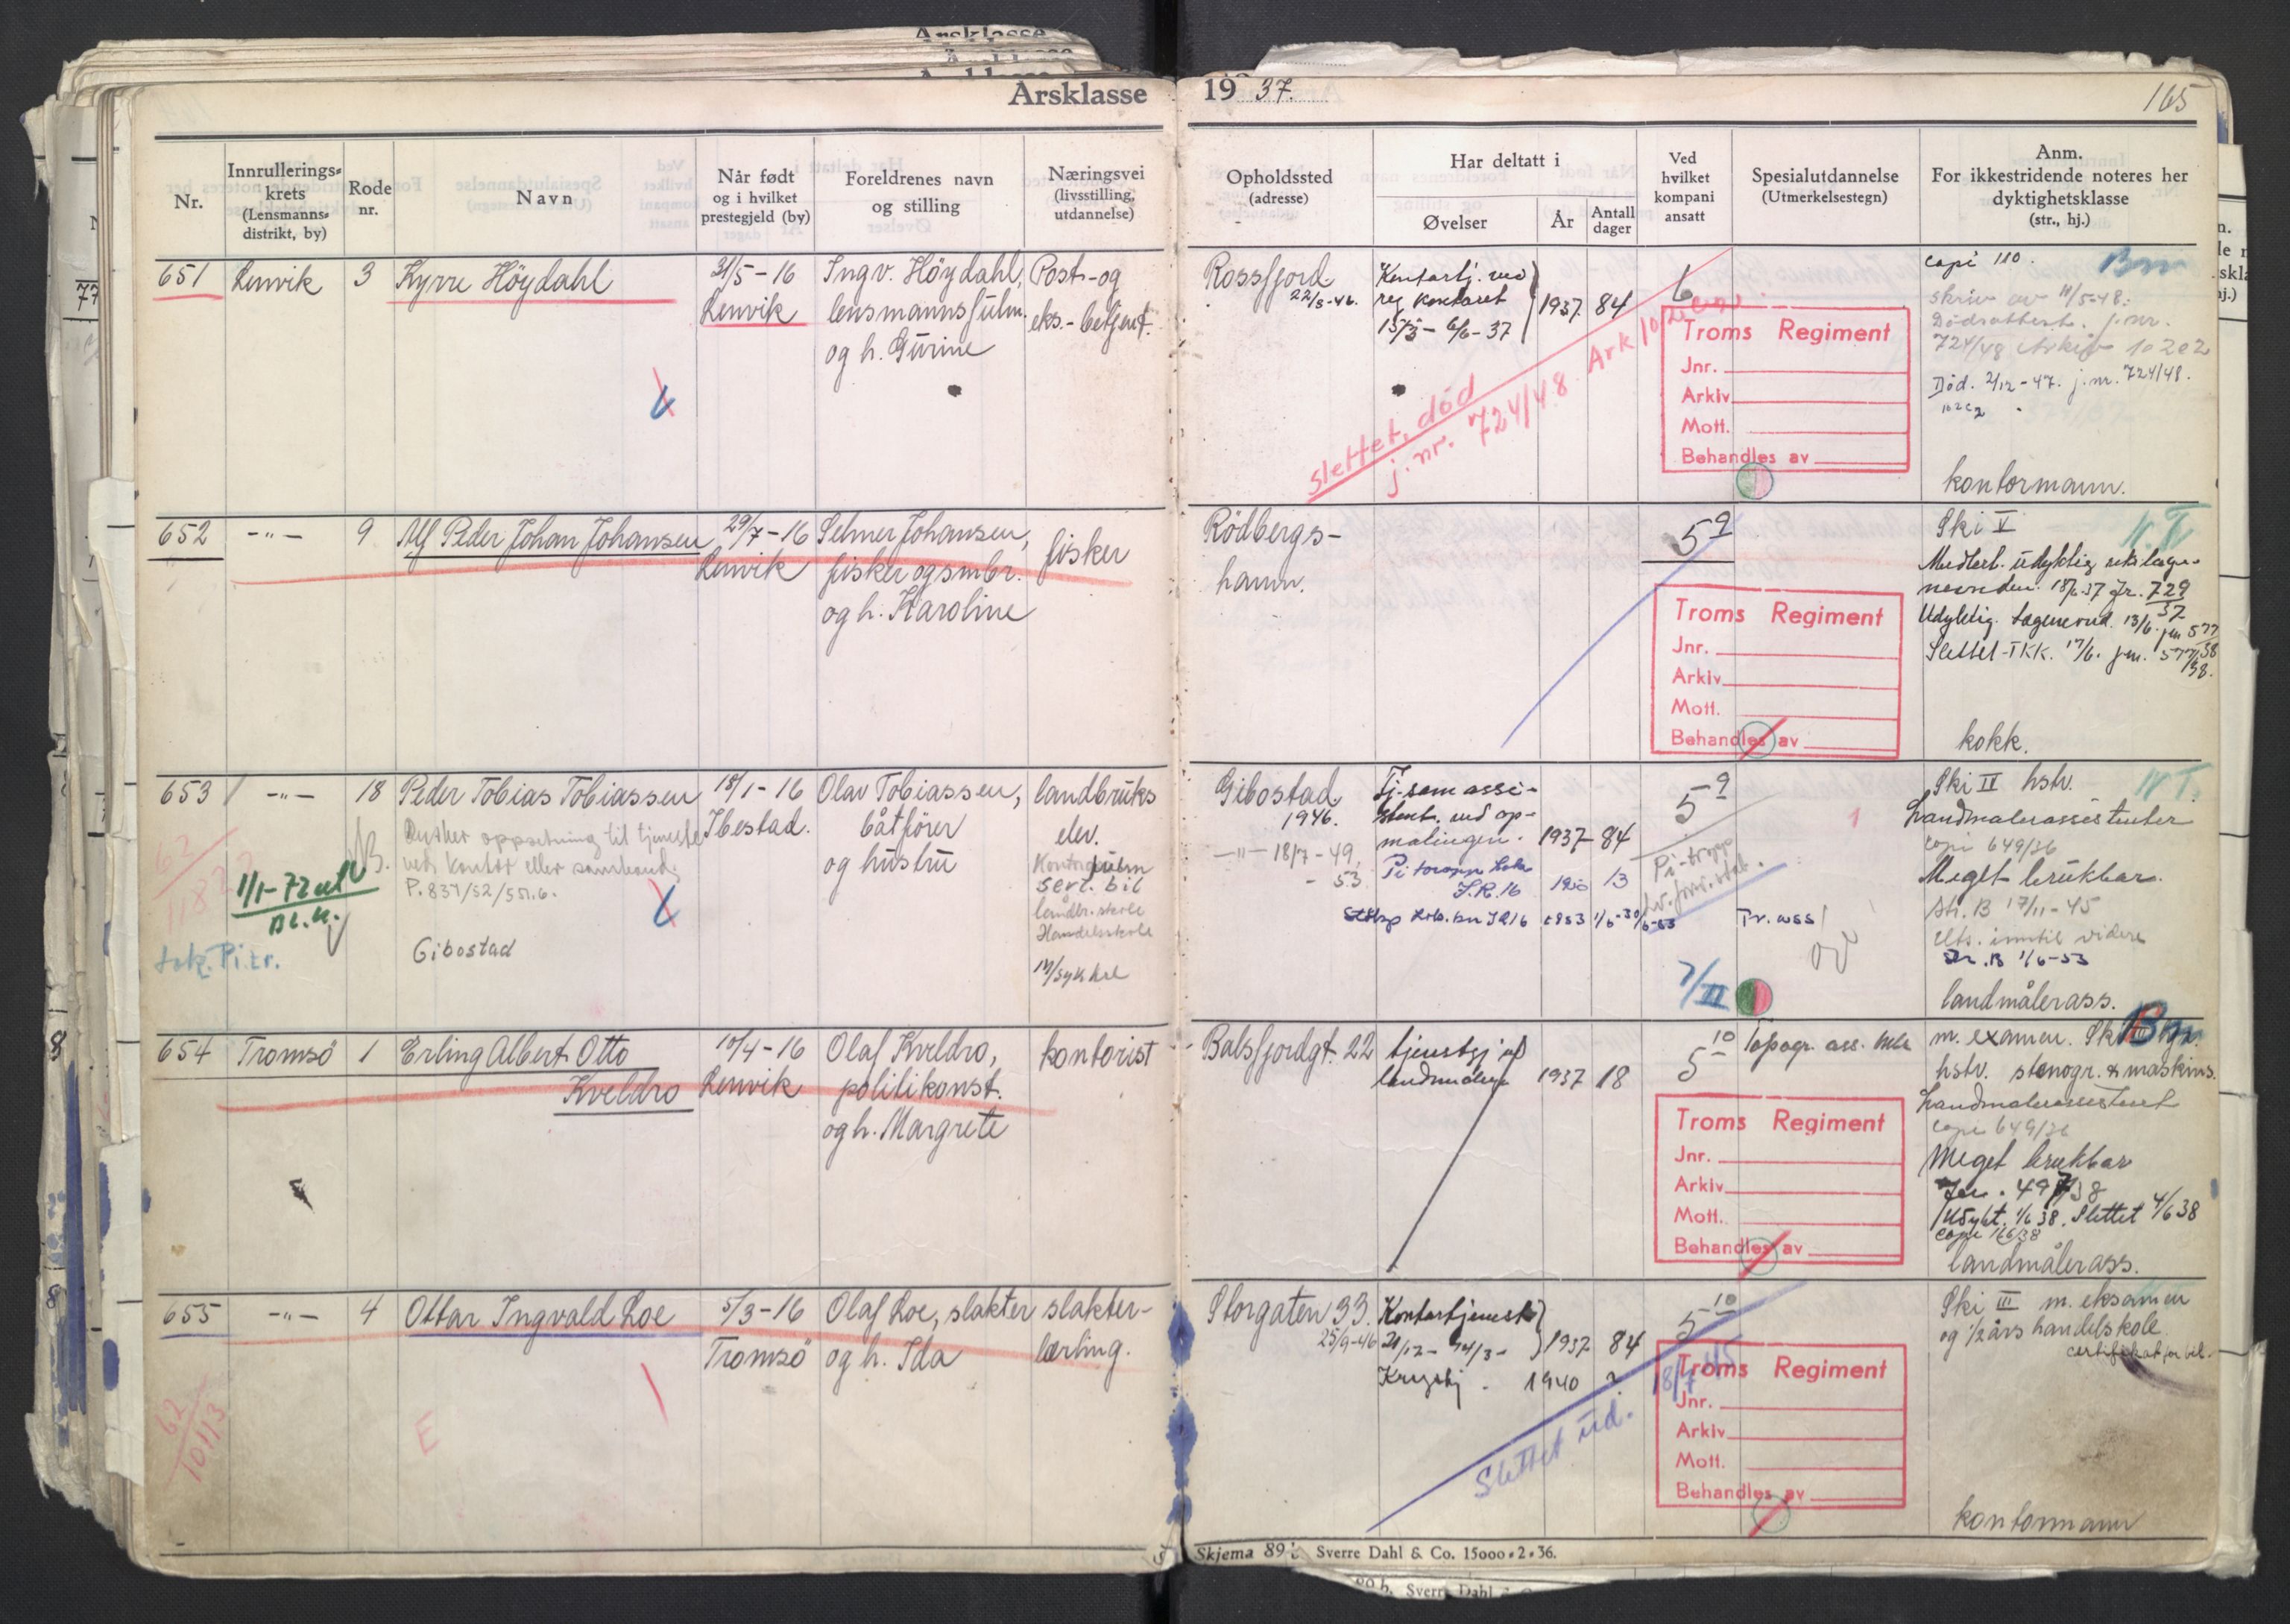 Årsklasse 1937.
165
Nr.
Innrullerings-
krets
(Lensmanns-
distrikt, by)
Rode
nr.
Navn
Når født
og i hvilket
prestegjeld (by)
Foreldrenes navn
og stilling
Næringsvei
(livsstilling,
utdannelse)
Opholdssted
(adresse)
Har deltatt i
Øvelser
År
Antall
dager
Ved
hvilket
kompani
ansatt
Spesialutdannelse
(Utmerkelsestegn)
Anm.
For ikkestridende noteres her
dyktighetsklasse
(str., hj.)
651 Lenvik 3 Kyrre Höydahl
31/5-16
Lenvik
Ingv. Höydahl,
lensmannsfulm.
og h. Gurine
Post- og
eks.-betjent.
Rossfjord
22/5-46.
Kontortj. ved
reg kontoret
15/3 - 6/6-37
1937 84
6
slettet, død
j. nr. 724/48. Ark 102c2
Troms Regiment
Jnr.
Arkiv
Mott.
Behandles av
copi 110.
Bm
skriv av 11/5-48.
Dödsattest. j.nr.
724/48 Arkiv 102c2
Död. 2/12-47. j.nr. 724/48.
102c2
kontormann.
652 -"- 9 Alf Peder Johan Johansen
29/7-16
Lenvik
Selmer Johansen,
fisker og smbr.
og h. Karoline
fisker
Rödbergs-
hamn.
5 9
Troms Regiment
Jnr.
Arkiv
Mott.
Behandles av
Ski V
Slettet TKK. 17/6.
kokk.
653 -"- 18 Peder Tobias Tobiassen
18/1-16
Ibestad.
Olav Tobiassen,
båtförer
og hustru
landbruks
elev.
Önsker oppsetning til tjeneste
ved kontor eller samband.
P. 837/52/551.6.
Gibostad
62/1182
1/1-72 utl
Pi.tr.
Kontorfulm
Sert. bil
landbr. skole
Handelsskole
Gibostad
1946.
-"- 18/7-49,
- 53.
Tj. som assi-
stent. ved op-
målingen.
1937 84
I.R.16 1950 13
1953 1/6-30/6-53
5 9
Pi-tropp
7/III
Tr. ass
Ski II hstv.
Landmålerassistenter
copi 649/36
Meget brukbar.
Str. B 17/11-45
Uts. inntil videre
Str. B 1/6-53
landmålerass.
654 Tromsö 1 Erling Albert Otto
Kveldro
10/4-16
Lenvik
Olaf Kveldro,
politikonst.
og h. Margrete
kontorist
Balsfjordgt. 22
tjenstgj. af
landmåler
1937 18
5 10
Topogr. ass.
Troms Regiment
Jnr.
Arkiv
Mott.
Behandles av
m. examen. Ski III
hstv. stenogr. & maskins.
Landmålerassistent
copi 649/36
Meget brukbar
Jnr. 497/38
Udykt. 1/6 38. Slettet 4/6 38
landmålerass.
655 -"- 4 Ottar Ingvald Loe
5/3-16
Tromsö
Olaf Loe, slakter
og h. Ida
slakter-
lærling.
62/1013
E
Storgaten 33.
25/9-46
Kontortjeneste
21/12 - 14/3 -
1937 84
Krigstj. 1940 ?
5 10
18/7 45
Slettet ud.
Troms Regiment
Jnr.
Arkiv
Mott.
Behandles av
Ski III m. eksamen
og 1/2 års handelskole.
certifikat for bil.
kontormann
Skjema 89 b. Sverre Dahl & Co. 15000.2.36.